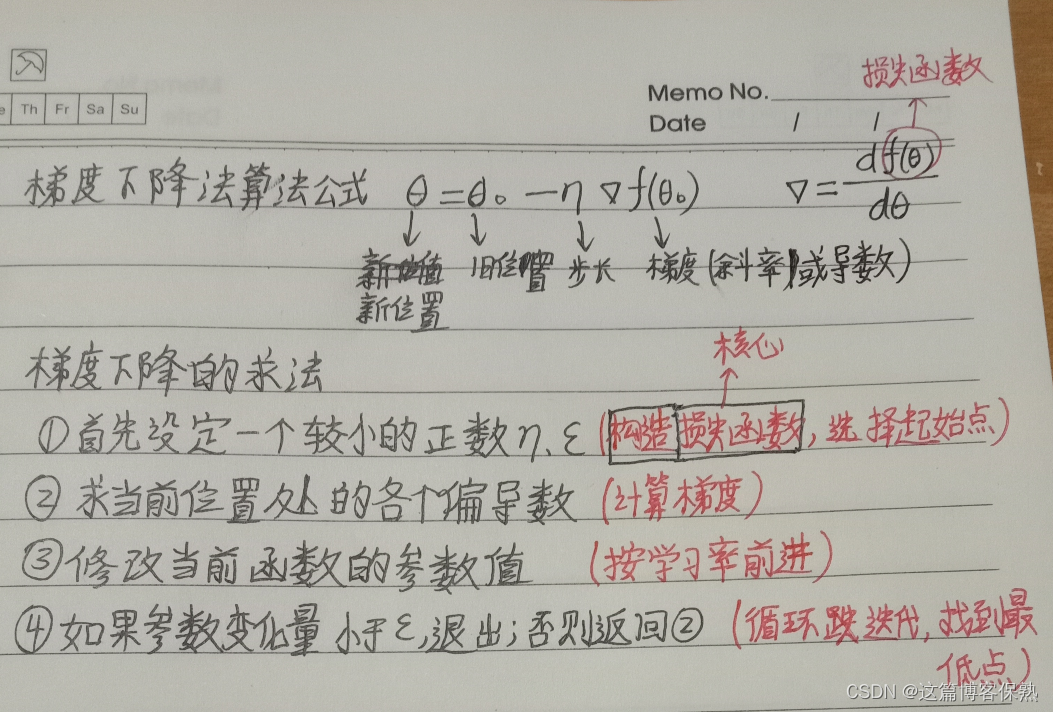 损失函数
Memo No.
Date / /
Th Fr Sa Su
梯度下降法算法公式 θ = θ₀ - η ∇ f(θ₀) ∇ = df(θ)/dθ
旧位置 步长 梯度(斜率或导数)
新位置
梯度下降的求法
核心
①首先设定一个较小的正数η、ε(构造损失函数,选择起始点)
②求当前位置处的各个偏导数(计算梯度)
③修改当前函数的参数值(按学习率前进)
④如果参数变化量小于ε,退出;否则返回②(循环迭代,找到最
低点)
CSDN @这篇博客保熟